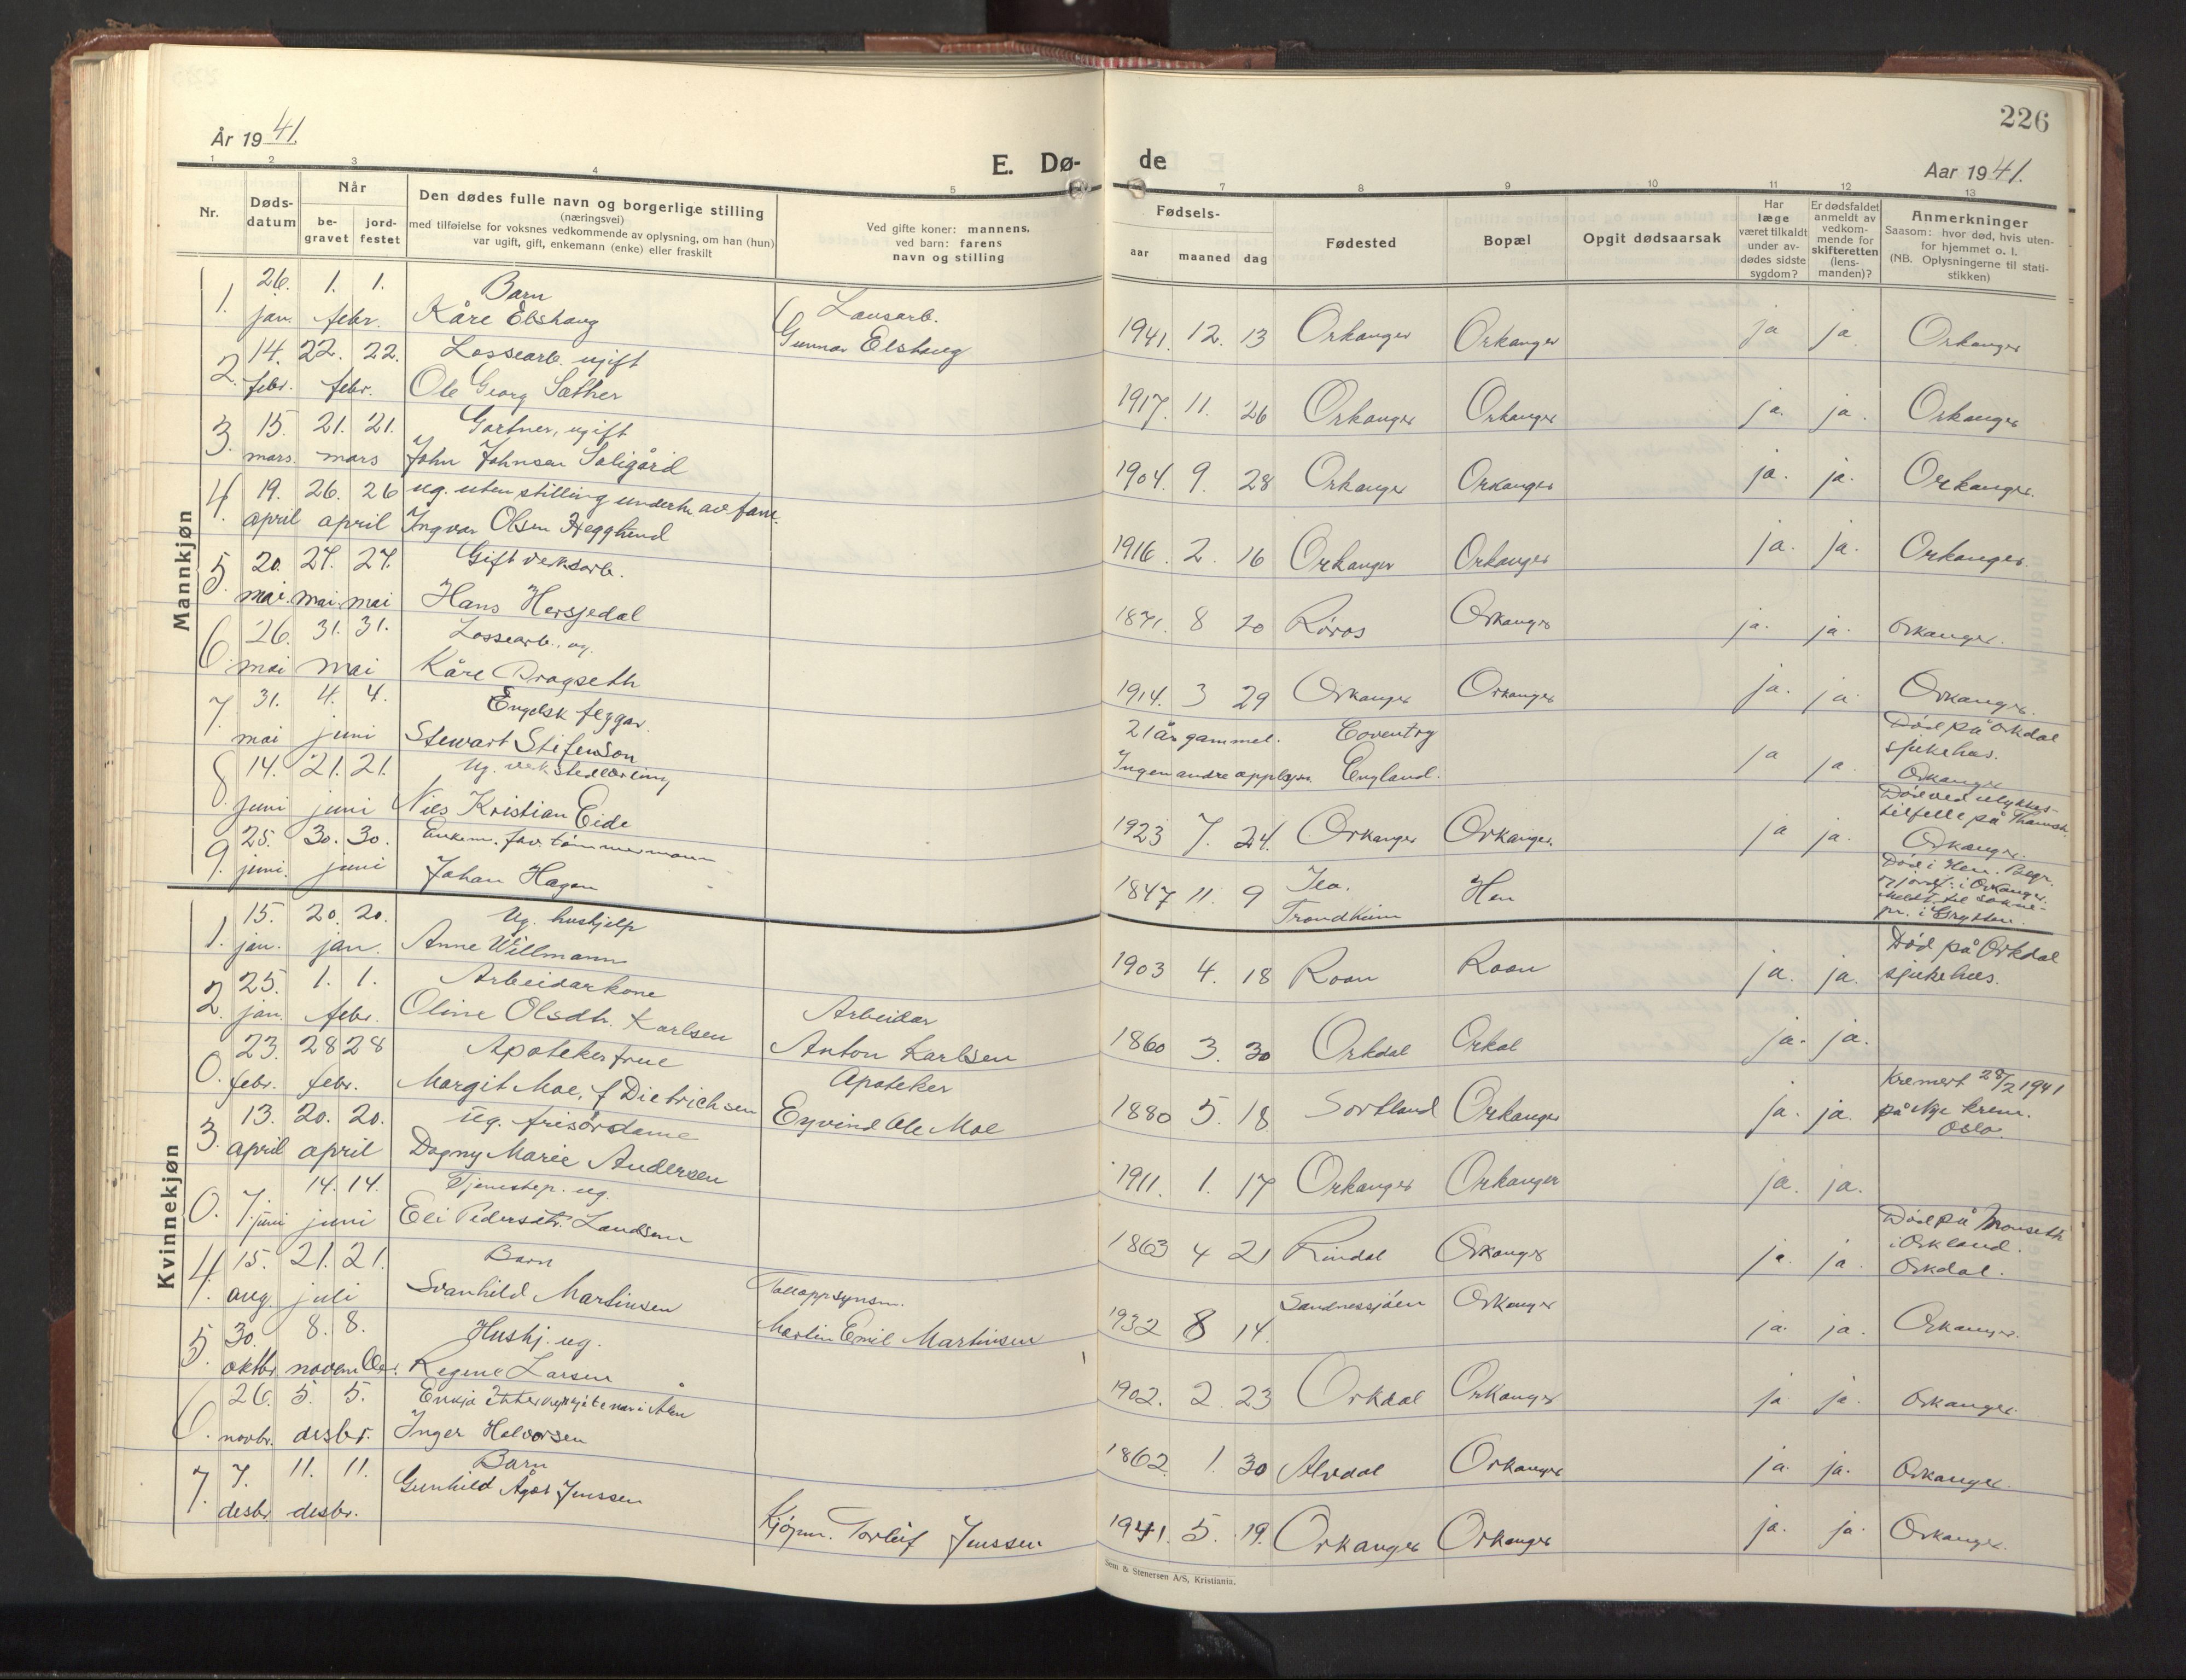 226
År 1941.
E. Dø-
de
Aar 1941.
1 2 3 4 5
7 8 9 10 11 12 13
Nr.
Døds-
datum
Når
be-
gravet
jord-
festet
Den dødes fulle navn og borgerlige stilling
(næringsvei)
med tilføielse for voksnes vedkommende av oplysning, om han (hun)
var ugift, gift, enkemann (enke) eller fraskilt
Ved gifte koner: mannens,
ved barn: farens
navn og stilling
Fødsels-
aar
maaned
dag
Fødested
Bopæl
Opgit dødsaarsak
Har
læge
været tilkaldt
under av-
dødes sidste
sygdom?
Er dødsfaldet
anmeldt av
vedkom-
mende for
skifteretten
(lens-
manden)?
Anmerkninger
Saasom: hvor død, hvis uten-
for hjemmet o. l.
(NB. Oplysningerne til stati-
stikken)
Mannkjøn
1. 26. 1. 1. Barn
jan. febr. Kåre Elshaug Lausarb.
Gunnar Elshaug
1941. 12. 13 Orkanger Orkanger ja ja. Orkanger
2. 14. 22. 22. Lossearb. ugift
febr. febr. Ole Georg Sæther
1917. 11. 26 Orkanger Orkanger ja. ja. Orkanger
3. 15. 21. 21. Gartner, ugift
mars. mars John Johnsen Soligård
1904. 9. 28 Orkanger Orkanger ja. ja. Orkanger.
4. 19. 26. 26 ug. uten stilling underh. av fam.
april april Ingvar Olsen Hegghund
1916. 2. 16 Orkanger Orkanger ja. ja. Orkanger.
5. 20. 27. 27. Gift verksarb.
mai. mai. mai Hans Hersjedal
1871. 8 20 Røros Orkanger ja. ja. Orkanger.
6. 26. 31. 31. Lossearb., ug.
mai mai Kåre Dragseth
1914. 3 29 Orkanger Orkanger ja. ja Orkanger.
7. 31. 4. 4. Engelsk fløgar.
mai juni Stewart Stifenson
21 år gammel. Coventry
Ingen andre opplysn. England. ja ja.
Død på Orkdal
sjukehus.
Orkanger
8. 14. 21. 21. Ug. verkstedlærling
juni juni Nils Kristian Eide
1923 7. 24. Orkanger Orkanger. ja ja.
Død ved ulykkes-
tilfelle på Thamsh.
Orkanger.
9. 25. 30. 30. Enkem. fhv. tømmermann
juni. juni Johan Hagen
1847 11. 9 Ila. Hen
Trondheim
Død i Hen. Begr.
og jordf. i Orkanger.
Meldt til sokne-
pr. i Grytten.
Kvinnekjøn
1. 15. 20. 20. Ug. hushjelp
jan. jan. Anne Willmann
1903 4. 18 Roan Roan ja. ja.
Død på Orkdal
sjukehus.
2. 25. 1. 1. Arbeidarkone
jan. febr. Oline Olsdtr. Karlsen Arbeidar
Anton Karlsen
1860 3. 30 Orkdal Orkdal ja. ja.
0. 23. 28 28 Apotekerfrue
febr. febr. Margit Moe, f Dietrichsen Apoteker
Eyvind Ole Moe
1880 5. 18 Sortland Orkanger ja. ja.
Kremert 28/2 1941
på Nye krem.
Oslo.
3. 13. 20. 20. ug. frisørdame
april april Dagny Marie Andersen
1911. 1. 17 Orkanger Orkanger ja. ja.
0. 7. 14. 14. Tjenestep. ug.
juni juni Eli Pedersdtr. Landsem
1863 4 21 Rindal Orkanger ja. ja.
Død på Monseth
i Orkland.
Orkdal.
4. 15. 21. 21. Barn
aug. juli Svanhild Martinsen Tolloppsynsm.
Martin Emil Martinsen
1932 8 14. Sandnessjøen Orkanger ja. ja. Orkanger.
5. 30. 8. 8. Hushj. ug.
oktbr. november. Regine Larsen
1902. 2 23 Orkdal Orkanger ja ja. Orkanger.
6. 26. 5. 5. Enkja etter
novbr. desbr. Inger Halvorsen
1862. 1. 30 Alvdal Orkanger ja. ja. Orkanger.
7. 7. 11. 11. Barn
desbr desbr. Gunhild Jenssen
Kjøpm. Torleif Jenssen
1941. 5. 19. Orkanger Orkanger ja. ja. Orkanger.
Sem & Stenersen A/S, Kristiania.